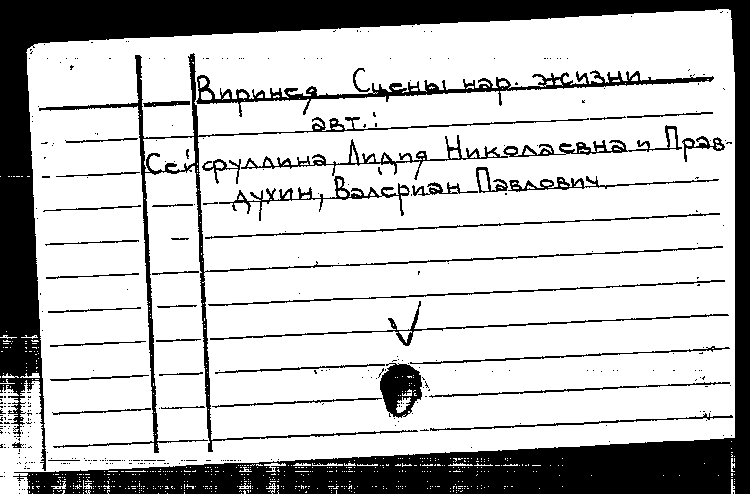 Виринея. Сцены нар. жизни.
авт.:
Сейфуллина, Лидия Николаевна и Прав-
духин, Валериан Павлович.